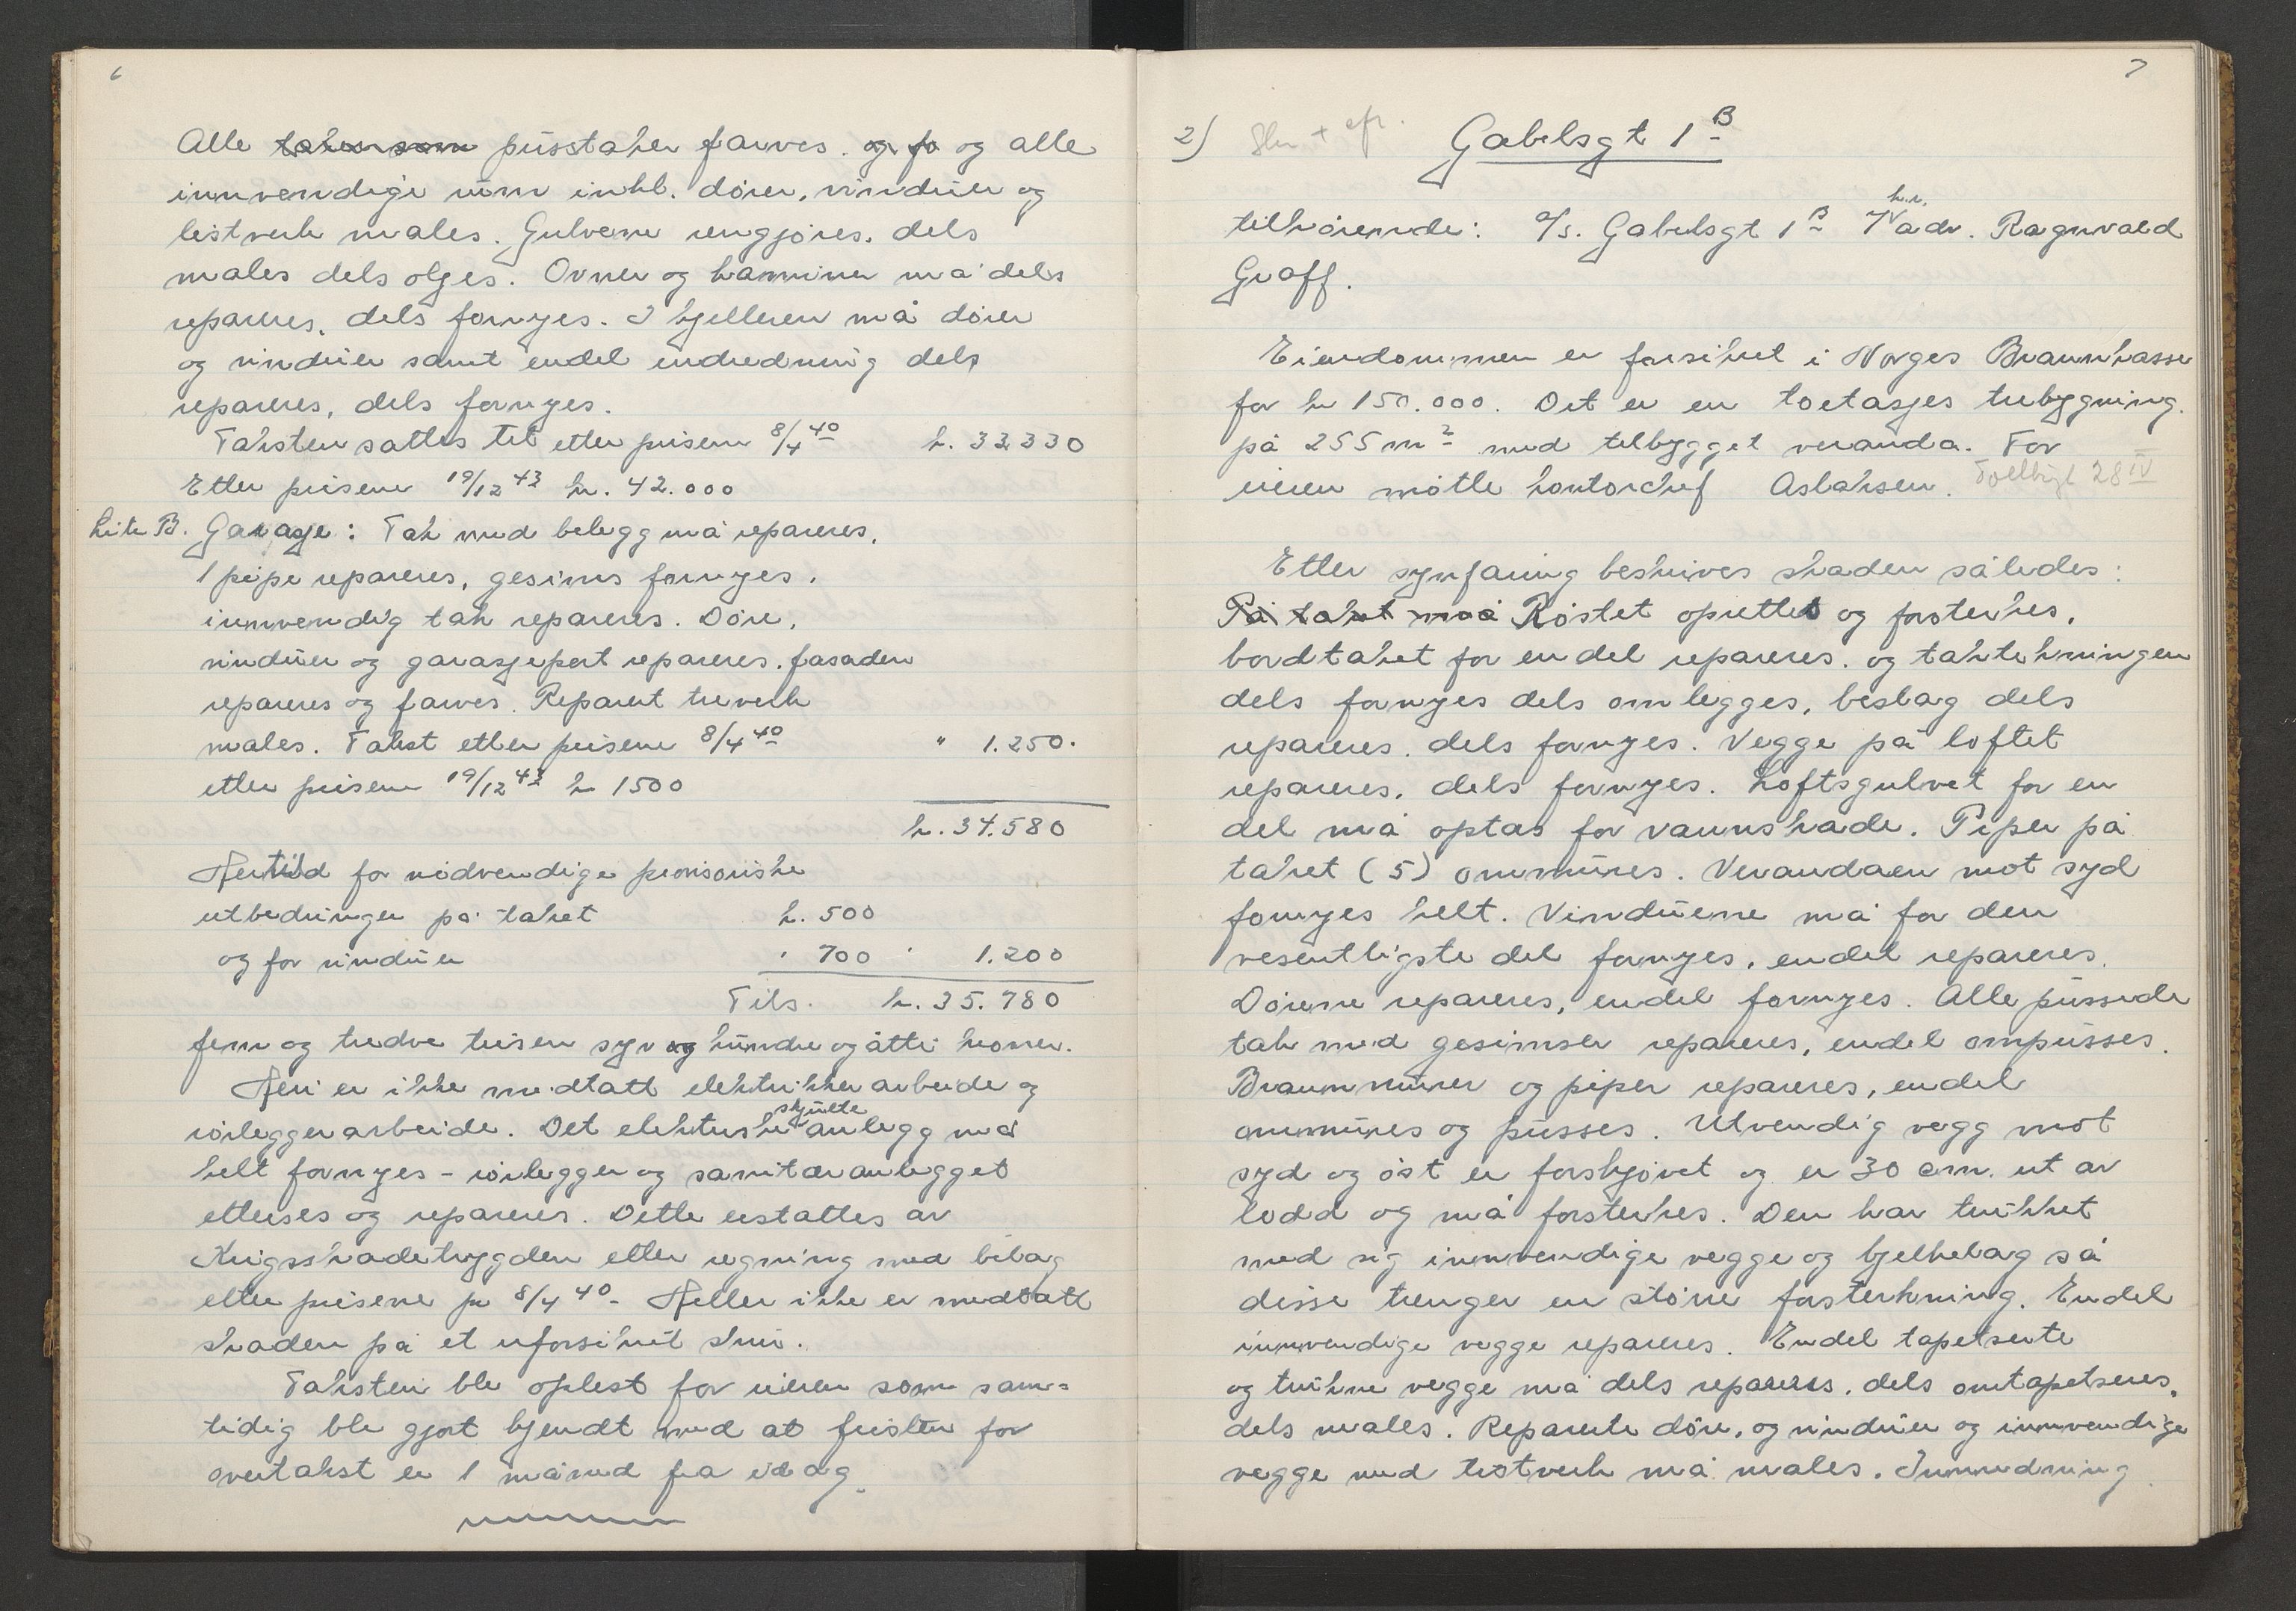 6
Alle taker som pusstaker farves. og fo og alle
innvendige rum inkl. dører, vinduer og
listverk males. Gulvene rengjøres, dels
males dels oljes. Ovner og kaminer må dels
repareres, dels fornyes. I kjelleren må dører
og vinduer samt endel indredning dels
repareres, dels fornyes.
Taksten sattes til etter prisene 8/4 40 kr. 32330
Etter prisene 19/12 43 kr. 42.000
Litr B. Garasje: Tak med belegg må repareres,
1 pipe repareres, gesims fornyes,
innvendig tak repareres. Döre,
vinduer og garasjeport repareres, fasaden
repareres og farves. Reparert treverk
males. Takst etter prisene 8/4 40 " 1.250.
etter prisene 19/12 43 kr 1500
kr. 34.580
Hertil for nödvendige provisoriske
utbedringer på taket kr. 500
og for vinduer " 700 " 1.200
Tils. kr. 35.780
fem og tredve tusen syv og hundre og åtti kroner.
Heri er ikke medtatt elektrikker arbeide og
rörleggerarbeide. Det elektriske skjulte anlegg må
helt fornyes - rörlegger og sanitæranlegget
etterses og repareres. Dette erstattes av
Krigsskadetrygden etter regning med bilag
etter prisene pr 8/4 40 - Heller ikke er medtatt
skaden på et uforsikret skur.
Taksten ble oplest for eieren som sam=
tidig ble gjort kjendt med at fristen for
overtakst er 1 måned fra idag.
7
2) Gabelsgt 1 B
tilhörende: A/S. Gabelsgt 1 B v/ h.r. adv. Ragnvald
Graff.
Eiendommen er forsikret i Norges Brannkasse
for kr 150.000. Det er en toetasjes trebygning
på 255 m2 med tilbygget veranda. For
eieren mötte kontorchef Aslaksen. Tollbugt 28 IV
Etter synfaring beskrives skaden således:
På taket må Röstet oprettes og forsterkes,
bordtaket for en del repareres. og taktekningen
dels fornyes dels omlegges, beslag dels
repareres. dels fornyes. Vegge på loftet
repareres, dels fornyes. Loftsgulvet for en
del må optas for vannskade. Piper på
taket (5) ommures. Verandaen mot syd
fornyes helt. Vinduene må for den
vesentligste del fornyes, endel repareres.
Dörene repareres, endel fornyes. Alle pussede
tak med gesimser repareres, endel ompusses.
Brannmurer og piper repareres, endel
ommures og pusses. Utvendig vegg mot
syd og öst er forskjövet og er 30 cm. ut av
lodd og må forsterkes. Den har trukket
med sig innvendige vegge og bjelkelag så
disse trenger en större forsterkning. Endel
innvendige vegge repareres. Endel tapetserte
og trukne vegge må dels repareres, dels omtapetseres,
dels males. Reparerte döre, og vinduer og innvendige
vegge med listverk må males. Innredning